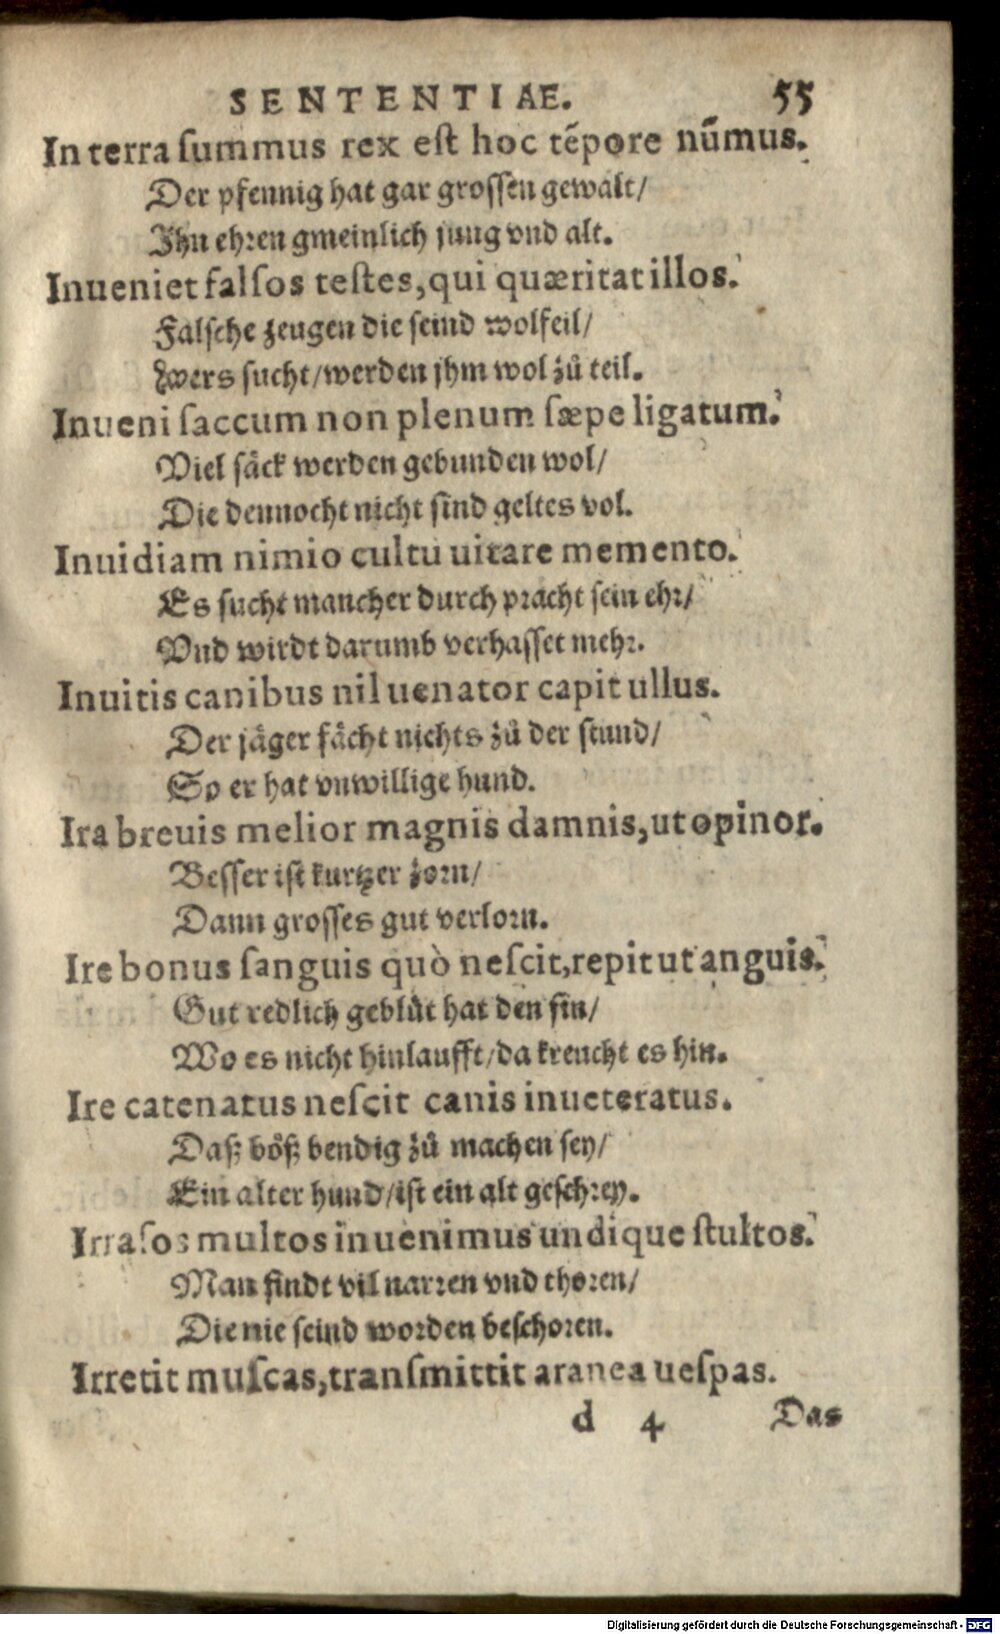 SENTENTIAE. 55
In terra ſummus rex eſt hoc tẽpore nũmus.
Der pfennig hat gar groſſen gewalt/
Ihn ehren gmeinlich jung vnd alt.
Inueniet falſos teſtes, qui quæritat illos.
Falſche zeugen die ſeind wolfeil/
Wers ſucht/werden jhm wol zů teil.
Inueni ſaccum non plenum ſæpe ligatum.
Viel ſäck werden gebunden wol/
Die dennocht nicht ſind geltes vol.
Inuidiam nimio cultu uitare memento.
Es ſucht mancher durch pracht ſein ehr/
Vnd wirdt darumb verhaſſet mehr.
Inuitis canibus nil uenator capit ullus.
Der jäger fächt nichts zů der ſtund/
So er hat vnwillige hund.
Ira breuis melior magnis damnis, ut opinor.
Beſſer iſt kurtzer zorn/
Dann groſſes gut verlorn.
Ire bonus ſanguis quò neſcit, repit ut anguis.
Gut redlich geblůt hat den ſin/
Wo es nicht hinlaufft/da kreucht es hin.
Ire catenatus neſcit canis inueteratus.
Daß böß bendig zů machen ſey/
Ein alter hund/iſt ein alt geſchrey.
Irraſos multos inuenimus undique ſtultos.
Man findt vil narren vnd thoren/
Die nie ſeind worden beſchoren.
Irretit muſcas, tranſmittit aranea ueſpas.
d 4 Das
Digitalisierung gefördert durch die Deutsche Forschungsgemeinschaft - DFG